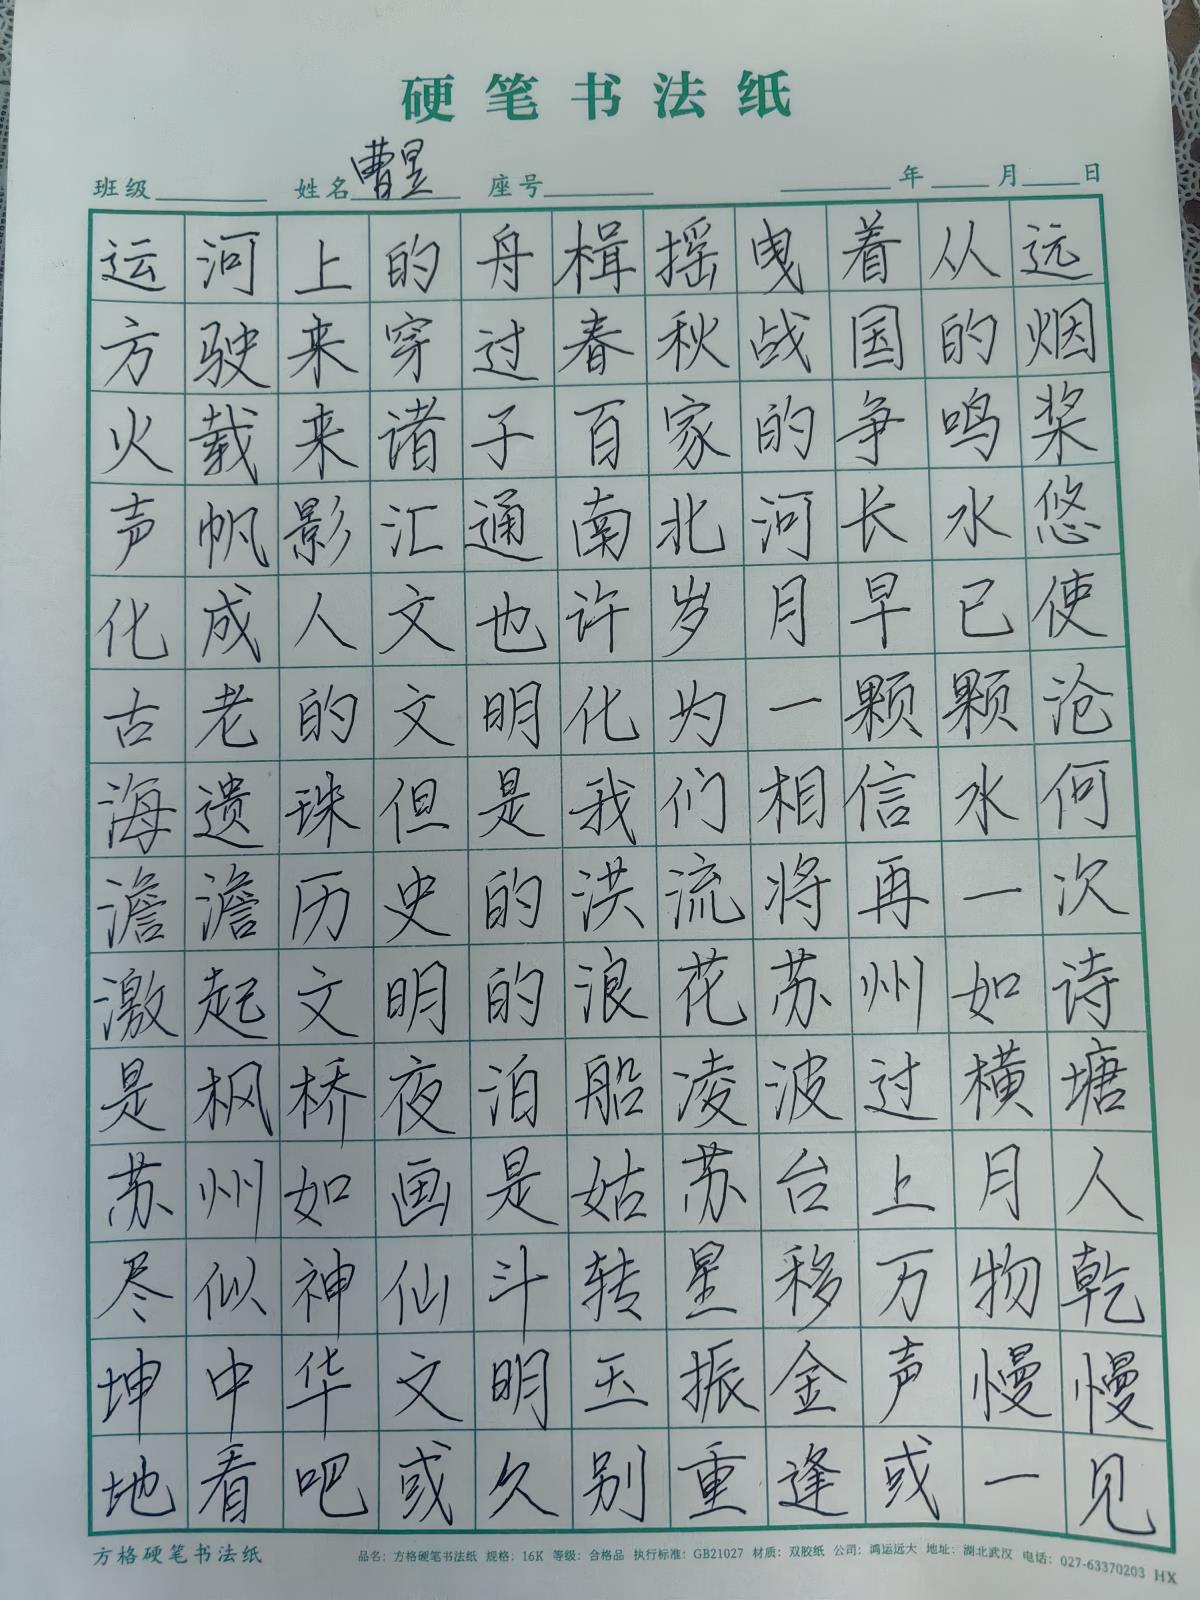 硬笔书法纸
班级 姓名 曹昱 座号 年 月 日
运河上的舟楫摇曳着从远
方驶来穿过春秋战国的烟
火载来诸子百家的争鸣桨
声帆影汇通南北河长水悠
化成人文也许岁月早已使
古老的文明化为一颗颗沧
海遗珠但是我们相信水何
澹澹历史的洪流将再一次
激起文明的浪花苏州如诗
是枫桥夜泊船凌波过横塘
苏州如画是姑苏台上月人
尽似神仙斗转星移万物乾
坤中华文明玉振金声慢慢
地看吧或久别重逢或一见
方格硬笔书法纸 品名：方格硬笔书法纸 规格：16K 等级：合格品 执行标准：GB21027 材质：双胶纸 公司：鸿运远大 地址：湖北武汉 电话：027-63370203 HX